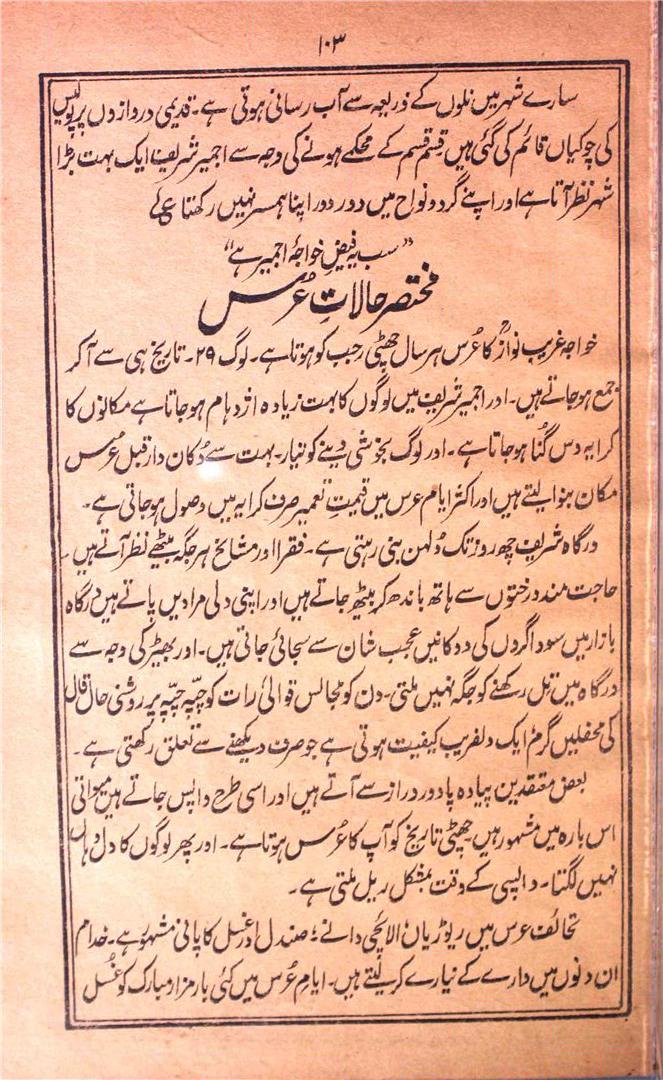 ۱۰۳
سارے شہر میں نلوں کے ذریعہ سے آب رسانی ہوتی ہے۔ قدیمی دروازوں پر پولیس
کی چوکیاں قائم کی گئی ہیں قسم قسم کے محکمے ہونے کی وجہ سے اجمیر شریف ایک بہت بڑا
شہر نظر آتا ہے اور اپنے گرد و نواح میں دور دور اپنا ہمسر نہیں رکھتا ع
”سب یہ فیضِ خواجۂ اجمیر ہے“
مختصر حالاتِ عُرس
خواجہ غریب نوازؒ کا عُرس ہر سال چھٹی رجب کو ہوتا ہے۔ لوگ ۲۹۔ تاریخ ہی سے آ کر
جمع ہو جاتے ہیں۔ اور اجمیر شریف میں لوگوں کا بہت زیادہ اژدہام ہو جاتا ہے مکانوں کا
کرایہ دس گُنا ہو جاتا ہے۔ اور لوگ بخوشی دینے کو تیار۔ بہت سے دُکان دار قبل عُرس
مکان بنوا لیتے ہیں اور اکثر ایام عرس میں قیمتِ تعمیر صرف کرایہ میں وصول ہو جاتی ہے۔
درگاہ شریف چھ روز تک دُلہن بنی رہتی ہے۔ فقرا اور مشائخ ہر جگہ بیٹھے نظر آتے ہیں۔
حاجت مند درختوں سے ہاتھ باندھ کر بیٹھ جاتے ہیں اور اپنی دلی مرادیں پاتے ہیں درگاہ
بازار میں سوداگروں کی دوکانیں عجب شان سے سجائی جاتی ہیں۔ اور بھیڑ کی وجہ سے
درگاہ میں تل رکھنے کو جگہ نہیں ملتی۔ دن کو مجالس قوالی رات کو چپّہ چپّہ پر روشنی حال قال
کی محفلیں گرم، ایک دلفریب کیفیت ہوتی ہے جو صرف دیکھنے سے تعلق رکھتی ہے۔
بعض معتقدین پیادہ پا دور دراز سے آتے ہیں اور اسی طرح واپس جاتے ہیں میواتی
اس بارہ میں مشہور ہیں چھٹی تاریخ کو آپ کا عُرس ہوتا ہے۔ اور پھر لوگوں کا دل وہاں
نہیں لگتا۔ واپسی کے وقت بمشکل ریل ملتی ہے۔
تحائف عرس میں ریوڑیاں، الائچی دانے، صندل اور غسل کا پانی مشہور ہے۔ خدام
ان دنوں میں وارے کے نیارے کر لیتے ہیں۔ ایامِ عُرس میں کئی بار مزار مبارک کو غُسل